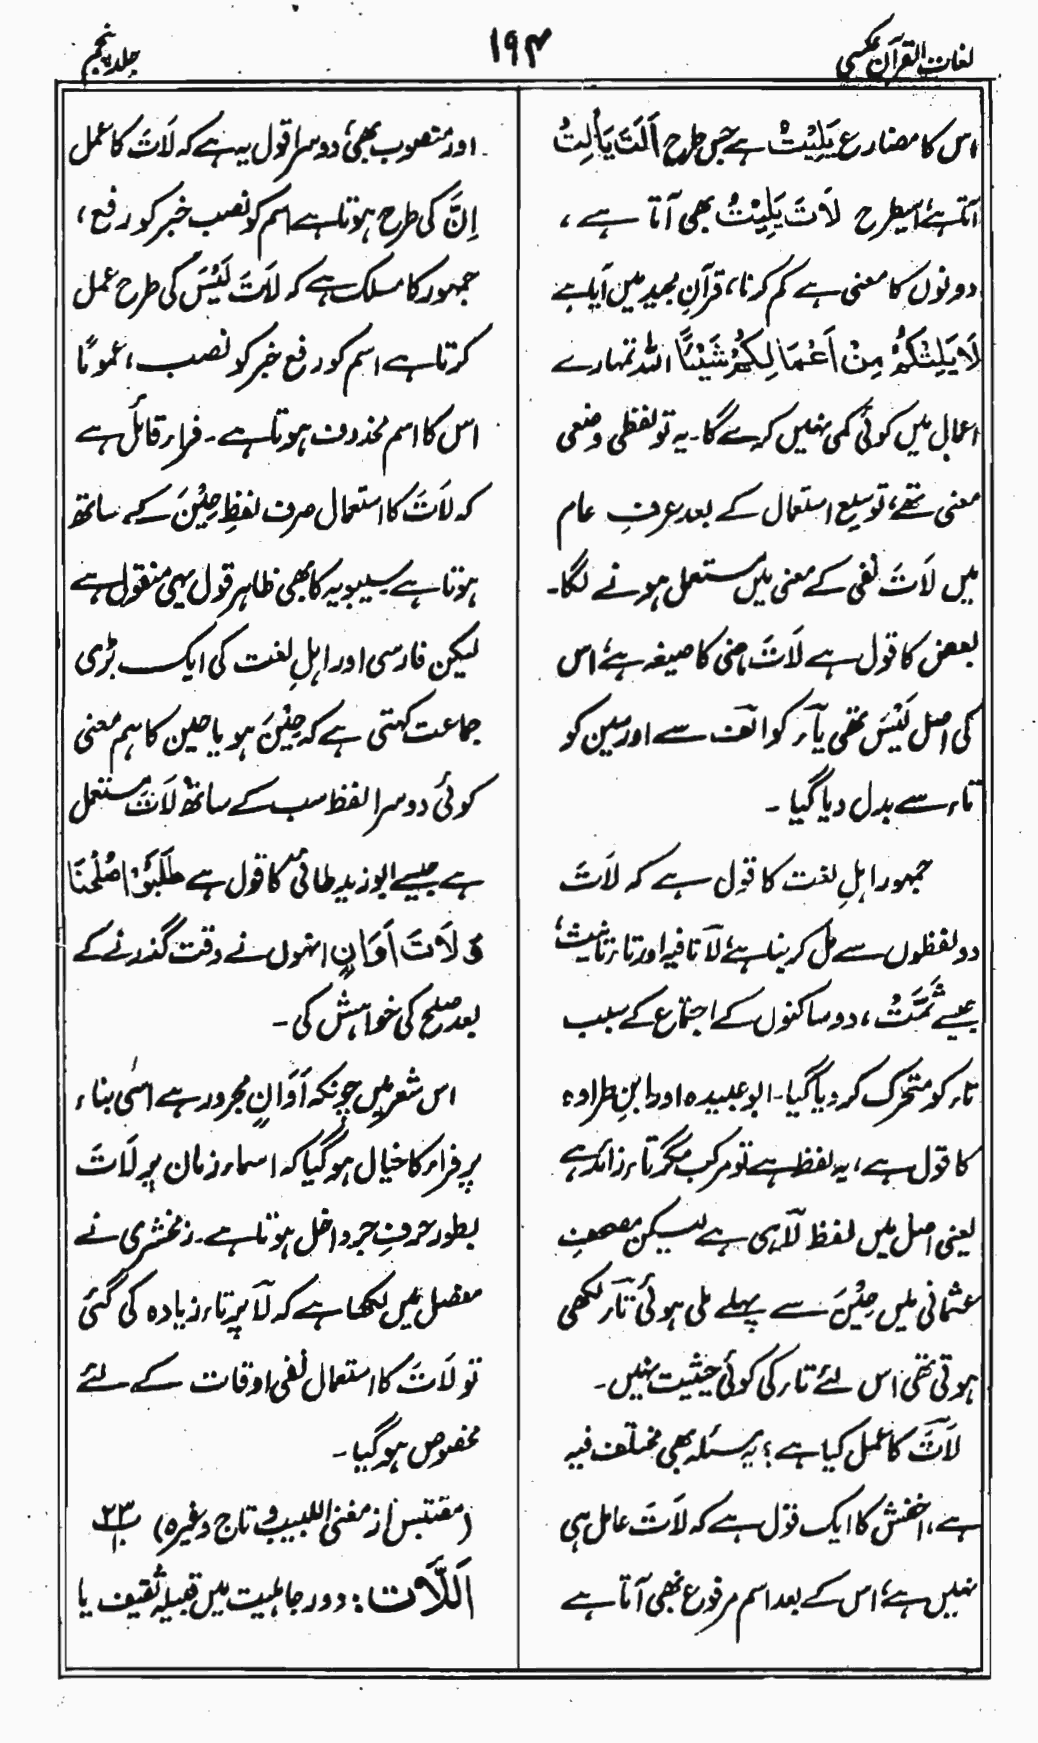 لغات القرآن عکسی
۱۹۴
جلد پنجم
اس کا مضارع یَلِیْتُ ہے جس طرح اَلَتَ یَأْلِتُ
آتا ہے، اسیطرح لَاتَ یَلِیْتُ بھی آتا ہے،
دونوں کا معنی ہے کم کرنا، قرآنِ مجید میں آیا ہے
لَا یَلِتْکُمْ مِنْ اَعْمَالِکُمْ شَیْئًا اللہ تمہارے
اعمال میں کوئی کمی نہیں کرے گا۔ یہ تو لفظی وضعی
معنی تھے، توسیع استعمال کے بعد عرفِ عام
میں لَاتَ نفی کے معنی میں مستعمل ہونے لگا۔
بعض کا قول ہے لَاتَ ماضی کا صیغہ ہے، اس
کی اصل لَیْسَ تھی یآر کو الف سے اور سین کو
تاء سے بدل دیا گیا۔
جمہور اہلِ لغت کا قول ہے کہ لَاتَ
دو لفظوں سے مل کر بنا ہے، لَآ نافیہ اور تاء تانیث،
جیسے ثَمَّتُ، دو ساکنوں کے اجتماع کے سبب
تاء کو متحرک کر دیا گیا۔ ابو عبیدہ اور ابنِ طراوہ
کا قول ہے، یہ لفظ ہے تو مرکب مگر تاء زائد ہے
یعنی اصل میں لفظ لَآ ہی ہے لیکن مصحفِ
عثمانی میں حِیْنَ سے پہلے ملی ہوئی تآر لکھی
ہوتی تھی اس لئے تاء کی کوئی حیثیت نہیں۔
لَاتَ کا عمل کیا ہے؟ یہ مسئلہ بھی مختلف فیہ
ہے، اخفش کا ایک قول ہے کہ لَاتَ عامل ہی
نہیں ہے، اس کے بعد اسم مرفوع بھی آتا ہے
اور منصوب بھی، دوسرا قول یہ ہے کہ لَاتَ کا عمل
اِنَّ کی طرح ہوتا ہے اسم کو نصب خبر کو رفع،
جمہور کا مسلک ہے کہ لَاتَ لَیْسَ کی طرح عمل
کرتا ہے اسم کو رفع خبر کو نصب، عموماً
اس کا اسم محذوف ہوتا ہے۔ فراء قائل ہے
کہ لَاتَ کا استعمال صرف لفظِ حِیْنَ کے ساتھ
ہوتا ہے سیبویہ کا بھی ظاہر قول یہی منقول ہے
لیکن فارسی اور اہلِ لغت کی ایک بڑی
جماعت کہتی ہے کہ حِیْنَ ہو یا حین کا ہم معنی
کوئی دوسرا لفظ سب کے ساتھ لَاتَ مستعمل
ہے جیسے ابو زبید طائی کا قول ہے طَلَبُوْا صُلْحَنَا
وَ لَاتَ اَوَانٍ انہوں نے وقت گذرنے کے
بعد صلح کی خواہش کی۔
اس شعر میں چونکہ اَوَانٍ مجرور ہے اسی بناء
پر فراء کا خیال ہو گیا کہ اسماء زمان پر لَاتَ
بطور حرفِ جر داخل ہوتا ہے۔ زمخشری نے
مفصل میں لکھا ہے کہ لَآ پر تاء زیادہ کی گئی
تو لَاتَ کا استعمال نفی اوقات کے لئے
مخصوص ہو گیا۔
(مقتبس از مغنی اللبیب و تاج وغیرہ) ۲۳
اَللَّات: دورِ جاہلیت میں قبیلہ ثقیف یا